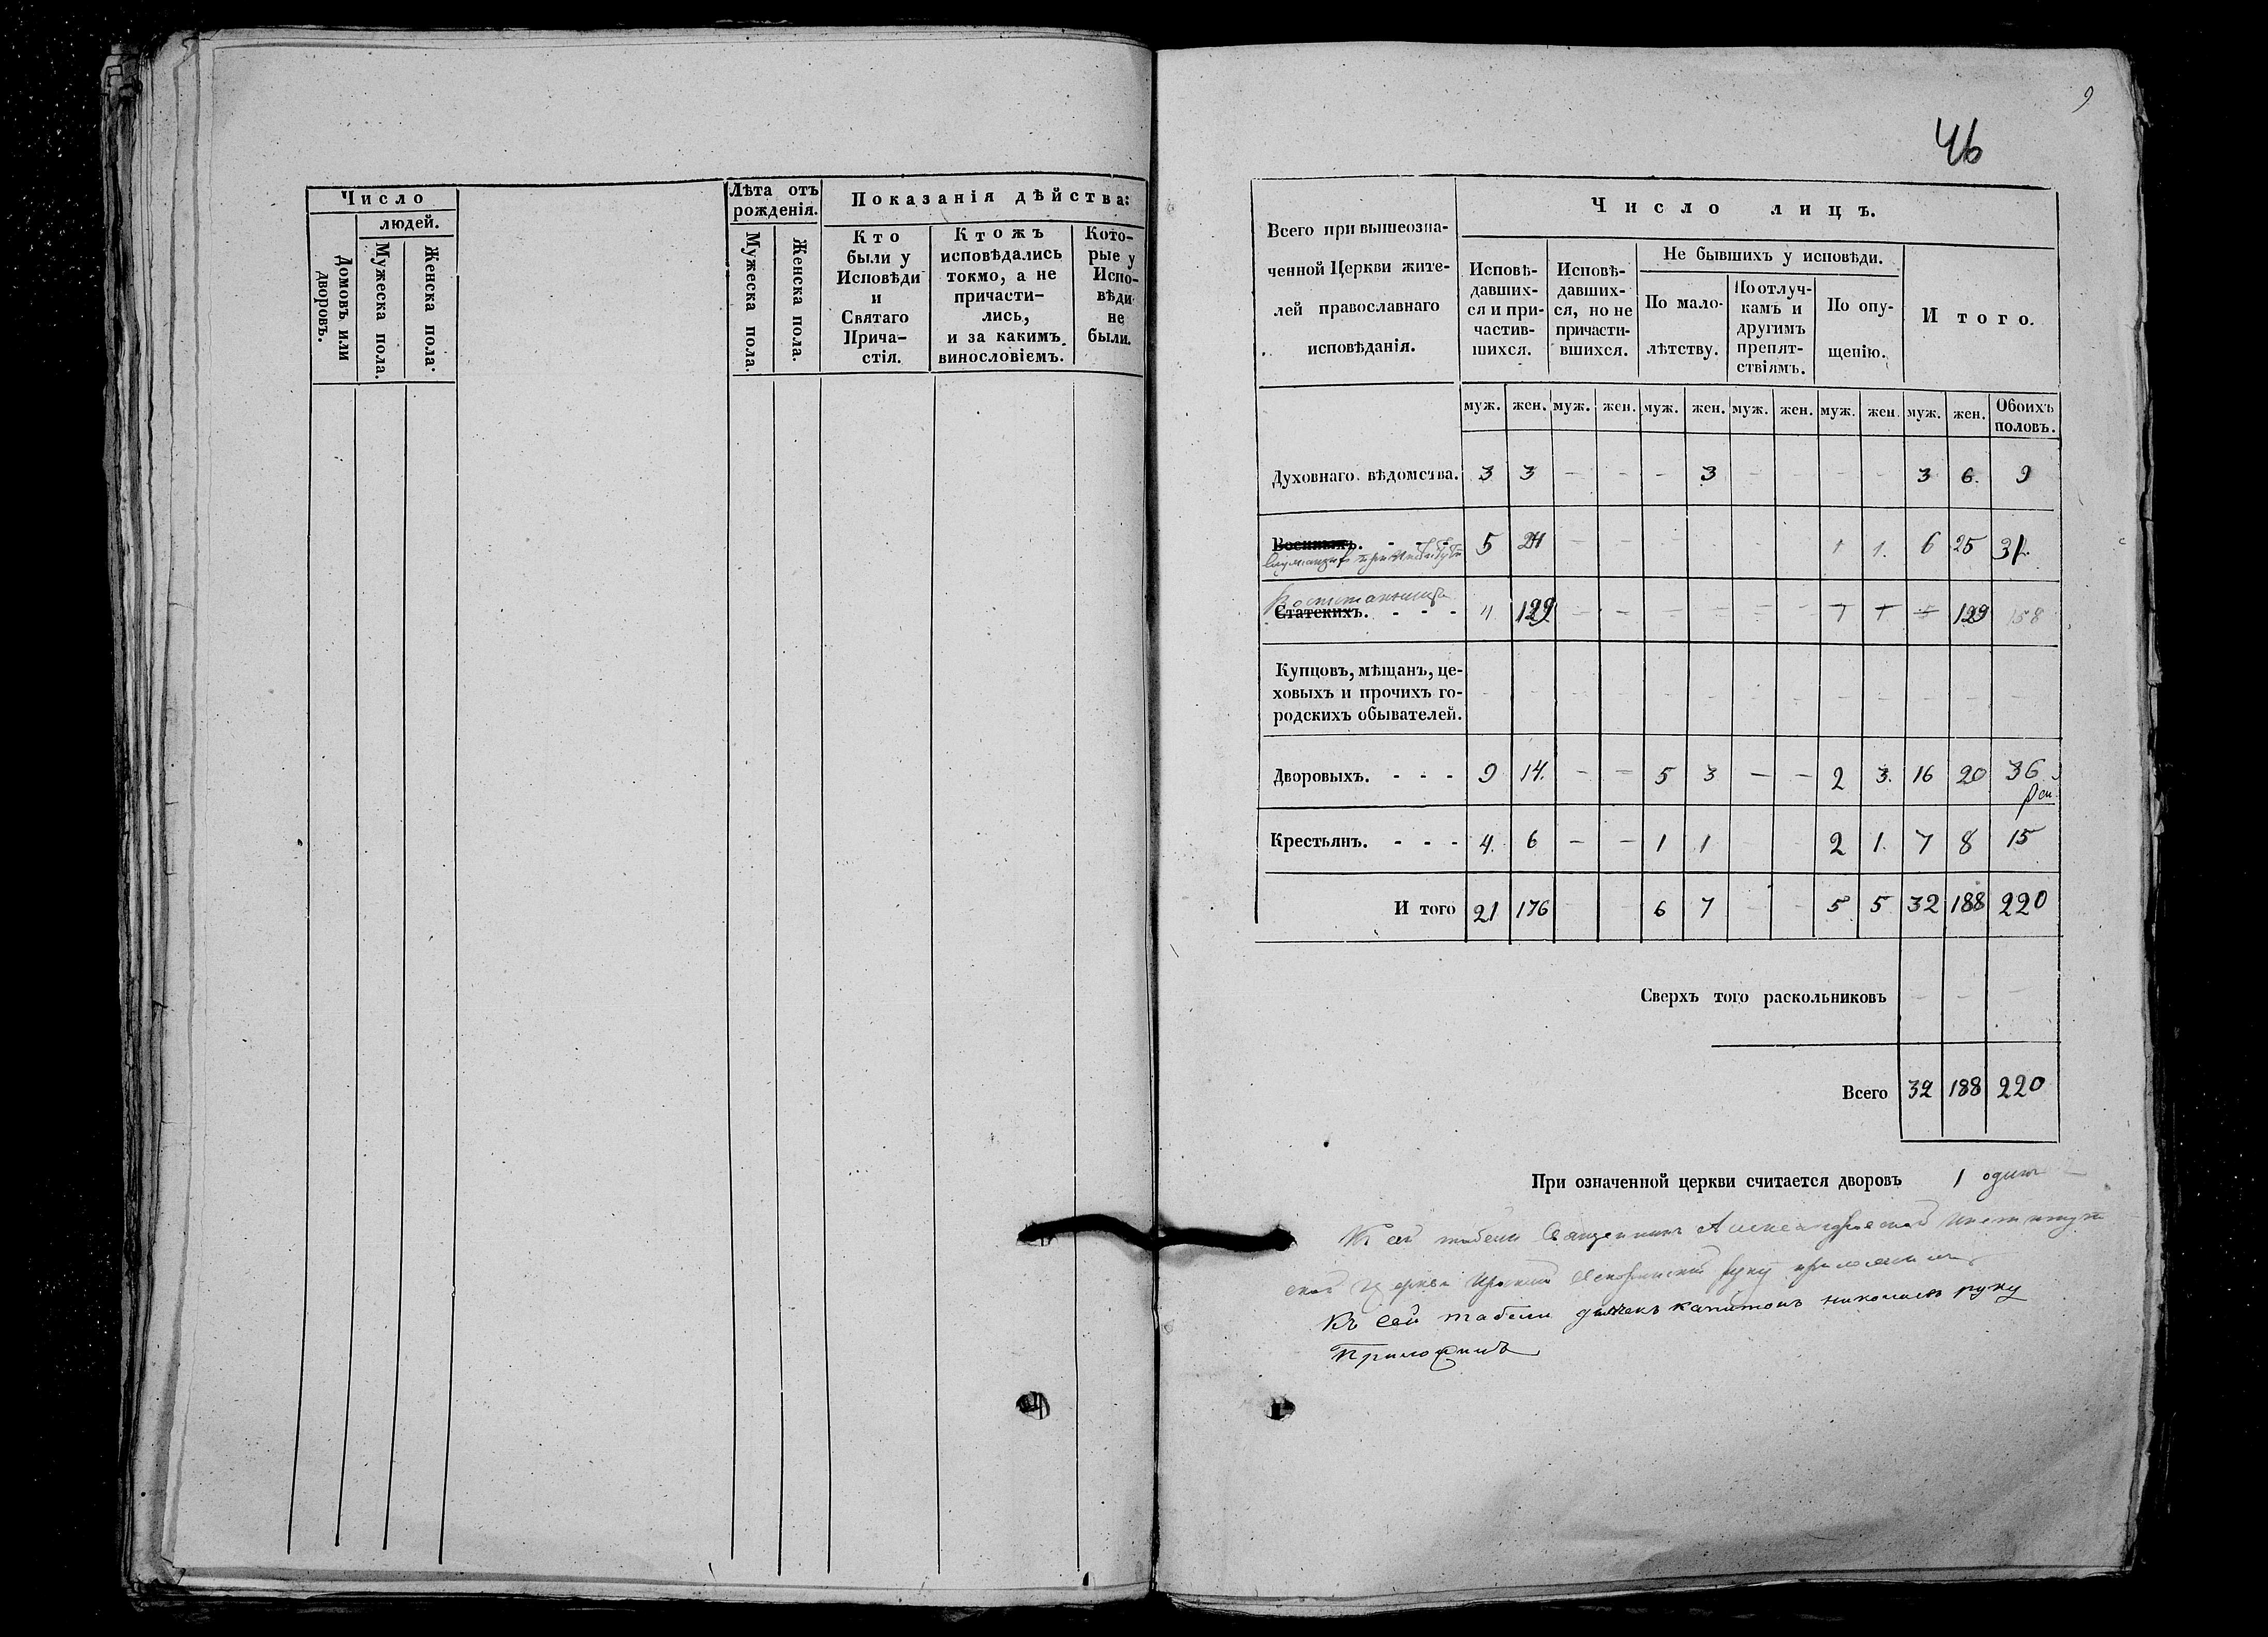 Число
людей.
Домовъ или дворовъ.
Мужеска пола.
Женска пола.
Лѣта отъ
рожденія.
Мужеска пола.
Женска пола.
Показанія дѣйства:
Кто
были у
Исповѣди
и
Святаго
Прича-
стія.
Ктожъ
исповѣдались
токмо, а не
причасти-
лись,
и за какимъ
винословіемъ.
Кото-
рые у
Испо-
вѣди
не
были.
9
46
Всего при вышеозна-
ченной Церкви жите-
лей православнаго
исповѣданія.
Число лицъ.
Исповѣ-
давших-
ся и при-
частив-
шихся.
Исповѣ-
давших-
ся, но не
причасти-
вшихся.
Не бывшихъ у исповѣди.
По мало-
лѣтству.
По отлуч-
камъ и
другимъ
препят-
ствіямъ.
По опу-
щенію.
Итого.
муж. жен. муж. жен. муж. жен. муж. жен. муж. жен. муж. жен. Обоихъ половъ.
Духовнаго вѣдомства. 3 3 - - - 3 - - - - 3 6. 9
Военныхъ. - - - 5 - - - - - - 1 1. 6 25 31.
Воспитанницъ
Статскихъ. - - - 129 129
Купцовъ, мѣщанъ, це-
ховыхъ и прочихъ го-
родскихъ обывателей. - - - - - - - - - - - - -
Дворовыхъ. - - - 9 14. - - 5 3 - - 2 3. 16 20 36
Крестьянъ. - - - 4. 6 - - 1 1 - - 2 1. 7 8 15
И того 21 176 - - 6 7 - - 5 5 32 188 220
Сверхъ того раскольниковъ - - -
Всего 32 188 220
При означенной церкви считается дворовъ 1 одинъ
Къ сей табели Священникъ Александровской Институт
ской Церкви руку приложилъ
Къ сей табели дьячекъ Капитонъ Николаевъ руку
Приложилъ